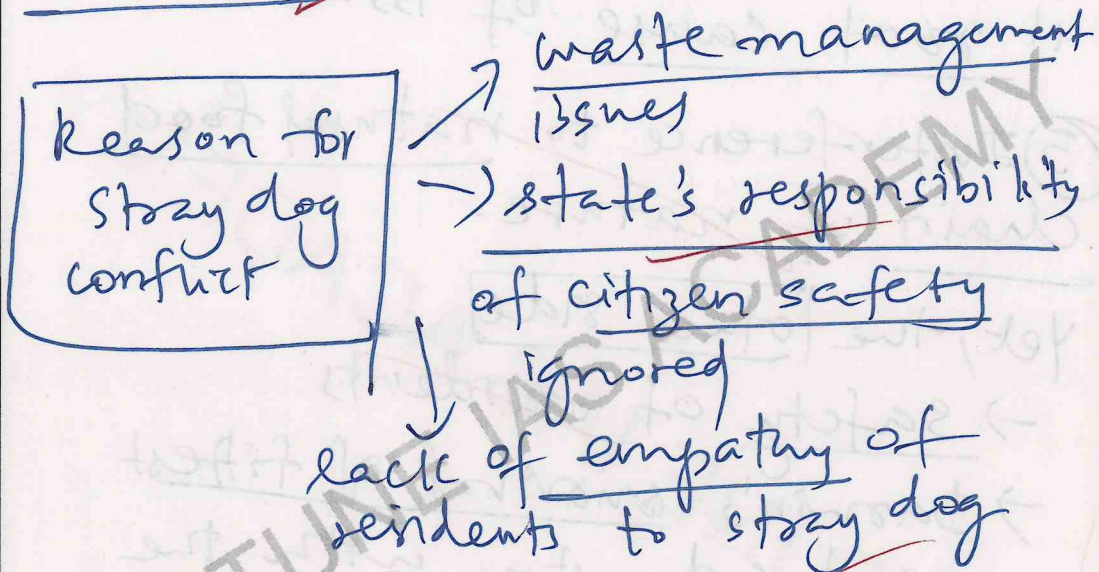 Reason for
stray dog
conflict
waste management
issues
state's responsibility
of citizen safety
ignored
lack of empathy of
residents to stray dog
TUNE IAS ACADEMY